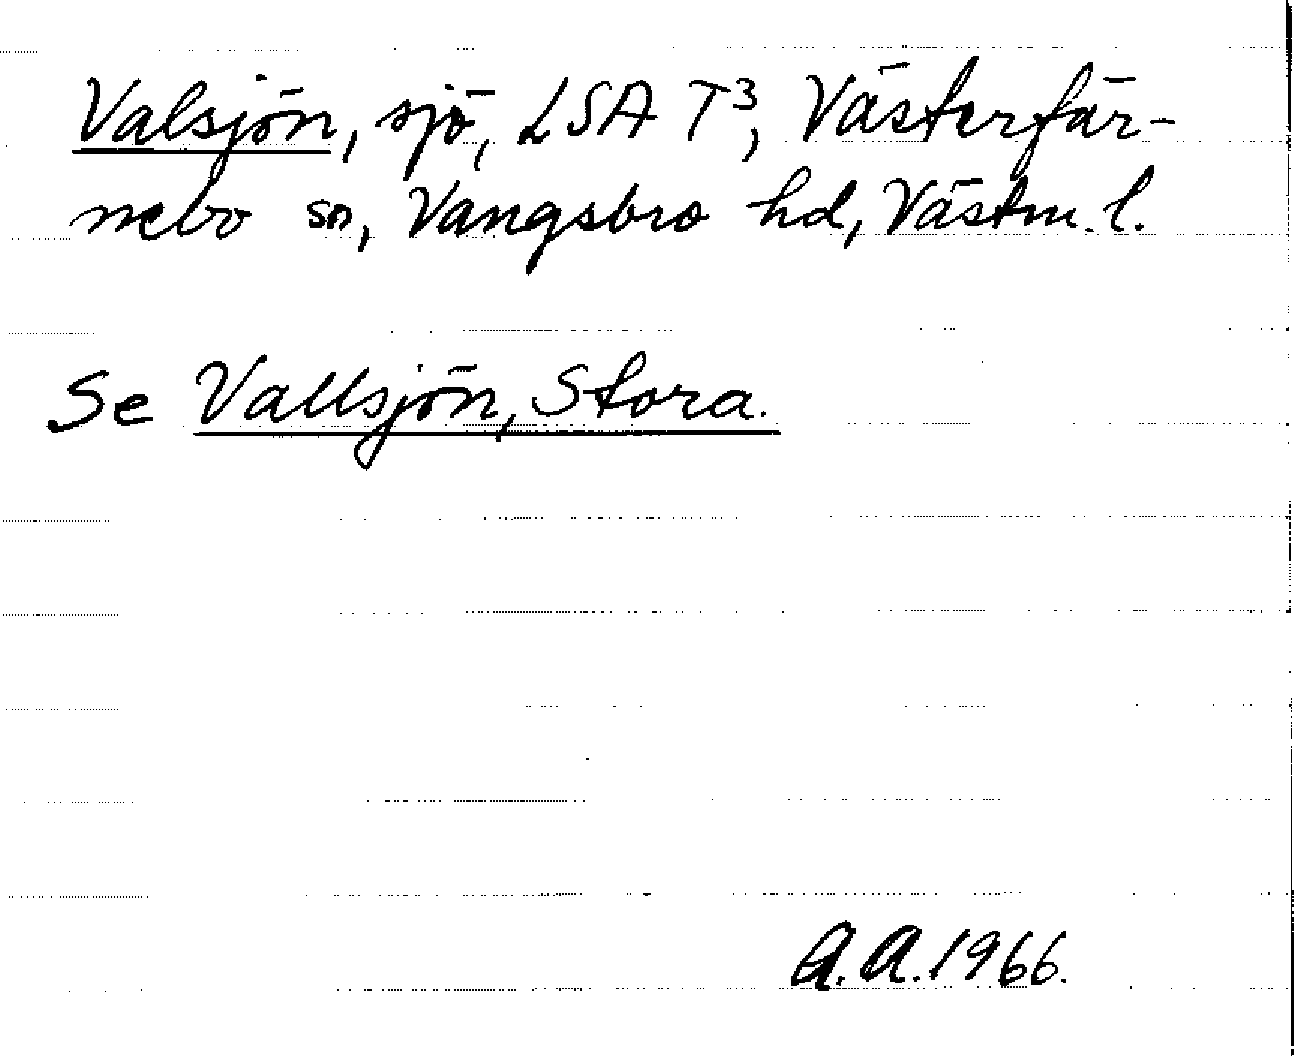 Valsjön, sjö, LSA T³, Västerfär-
nebo sn, Vangsbro hd, Västm. l.
Se Vallsjön, Stora.
A.A. 1966.